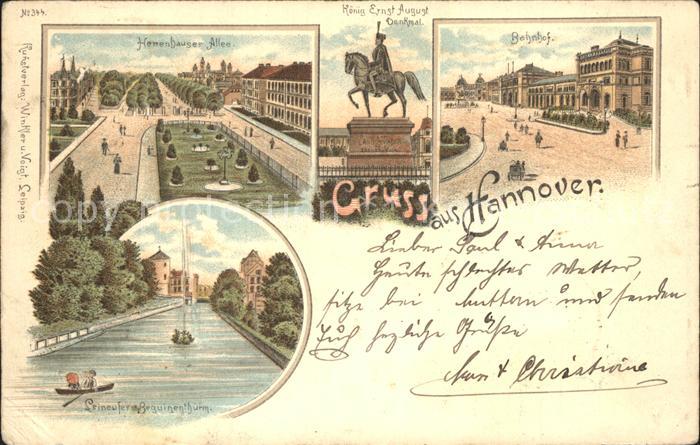 No 344.
König Ernst August
Denkmal.
Herrenhäuser Allee.
Bahnhof.
Kunstverlag: Winkler u. Voigt, Leipzig.
Gruss
aus Hannover.
Lieber Paul & Anna
Heute schlechtes Wetter,
sitze bei Muttern und senden
Euch herzliche Grüße
Max & Christiane
Leineufer u. Beguinenthurm.